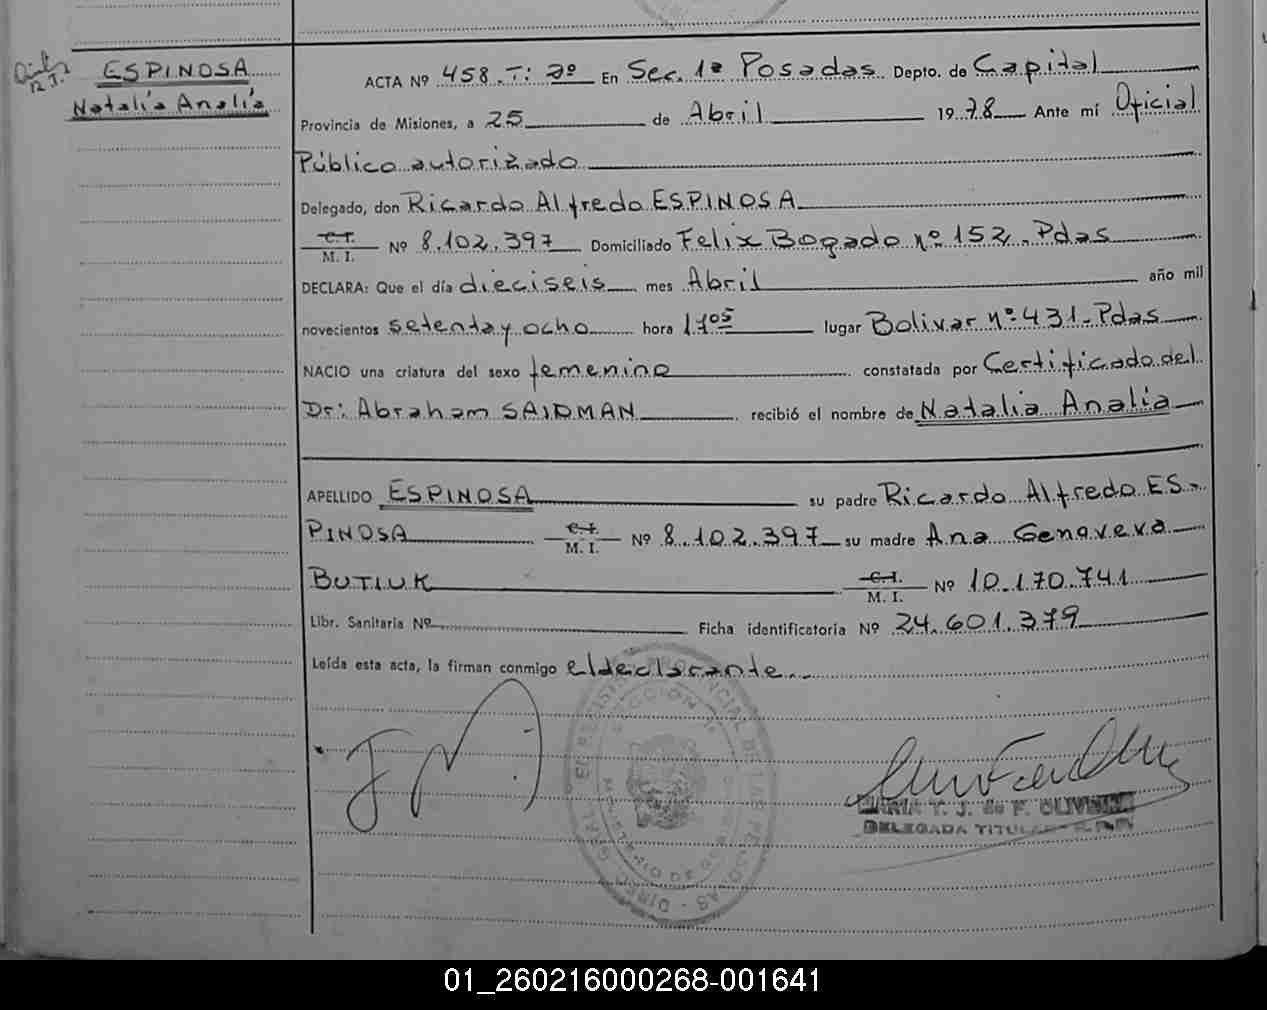 ESPINOSA
Natalia Analía
ACTA Nº 458. T: 2º En Sec. 1ª Posadas Depto. de Capital
Provincia de Misiones, a 25 de Abril 1978 Ante mí Oficial
Público autorizado
Delegado, don Ricardo Alfredo ESPINOSA
C.I.
M. I. Nº 8.102.397 Domiciliado Felix Bogado nº 152. Pdas
DECLARA: Que el día dieciseis mes Abril año mil
novecientos setenta y ocho hora 1705 lugar Bolivar nº 431-Pdas
NACIO una criatura del sexo femenino constatada por Certificado del
Dr: Abraham SAIDMAN recibió el nombre de Natalia Analía
APELLIDO ESPINOSA su padre Ricardo Alfredo ES-
PINOSA C.I. M. I. Nº 8.102.397 su madre Ana Genoveva
BUTIUK C.I. M. I. Nº 10.170.741
Libr. Sanitaria Nº Ficha identificatoria Nº 24.601.379
Leída esta acta, la firman conmigo el declarante..
MARIA T. J. de F. OLIVEIRA
DELEGADA TITULAR
01_260216000268-001641